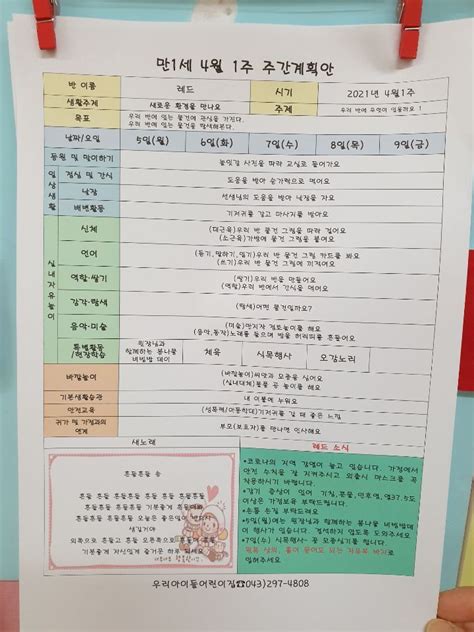 만1세 4월 1주 주간계획안
반 이름 레드 시기 2021년 4월1주
생활주제 새로운 환경을 만나요 주제 우리 반에 무엇이 있을까요?
목표 우리 반에 있는 물건에 관심을 가진다.
우리 반에 있는 물건을 탐색해본다.
날짜/요일 5일(월) 6일(화) 7일(수) 8일(목) 9일(금)
등원 및 맞이하기 놀잇감 사진을 따라 교실로 들어가요
일상생활 점심 및 간식 도움을 받아 숟가락으로 먹어요
낮잠 선생님의 도움을 받아 낮잠을 자요
배변활동 기저귀를 갈고 마사지를 받아요
실내자유놀이 신체 (대근육)우리 반 물건 그림을 따라 걸어요
(소근육)가방에 물건 그림을 붙여요
언어 (듣기,말하기,읽기)우리 반 물건 그림 카드를 봐요
(쓰기)우리 반 물건 그림에 끼적여요
역할·쌓기 (쌓기)우리 반을 만들어요
(역할)우리 반에서 간식을 먹어요
감각·탐색 (탐색)어떤 물건일까요?
음악·미술 (미술)만지자 점토놀이를 해요
(음악,동작)노래를 들으며 몸을 흔들어요
특별활동/현장학습 원장님과 함께하는 봄나물 비빔밥 데이 체육 식목행사 오감노리
바깥놀이 (바깥놀이)씨앗과 모종을 심어요
(실내대체)볼풀 공 놀이를 해요
기본생활습관 내 이불에 누워요
안전교육 (성폭력/아동학대)기저귀를 갈 때 좋은 느낌
귀가 및 가정과의 연계 부모(보호자)를 만나면 인사해요
새노래
흔들흔들 송
흔들 흔들 흔들흔들 흔들 흔들흔들
흔들흔들 흔들흔들 기분좋게 흔들어요
흔들흔들 흔들흔들 오늘은 좋은일이 생긴다
생길거야
외쪽으로 흔들고 흔들 오른쪽으로 흔들고 흔들
기분좋게 자신있게 즐거운 하루 되세요
레드 소식
*코로나의 지역 감염이 늘고 있습니다. 가정에서
안전 수칙을 잘 지켜주시고 외출시 마스크를 꼭
착용하시기 바랍니다.
*감기 증상이 있어 기침,콧물,인후염,열37.5도
이상은 가정보육 부탁드려요.
*손톱 손질 부탁드려요
*5일(월)에는 원장님과 함께하는 봄나물 비빔밥데
이 행사가 있습니다.
*7일(수) 식목행사- 꽃 모종심기를 합니다.
우리아이들어린이집☎043)297-4808